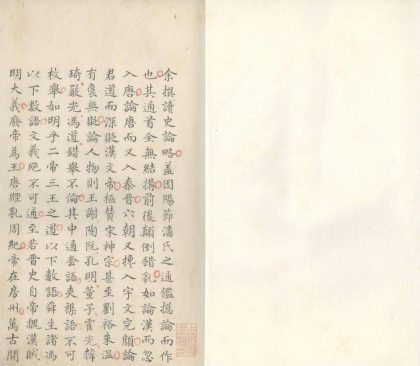 余撰讀史論略蓋因陽節潘氏之通鑑總論而作
也其通首全無結搆前後顛倒錯亂如論漢而忽
入唐論唐而又入秦晉六朝又攙入宇文完顏論
君道而深貶漢文帝極贊宋神宗甚至劉裕朱溫
有褒無貶論人物則王謝陶阮孔明董子霍光韓
琦嚴光馮道錯舉不倫其中通套語夾襍語不可
枚舉如明乎二帝三王之道以下數語舜生諸馮
以下數語文義絕不可通至若晉史自帝魏漢賊
明大義廢帝為王唐經亂周紀帝在房州萬古開